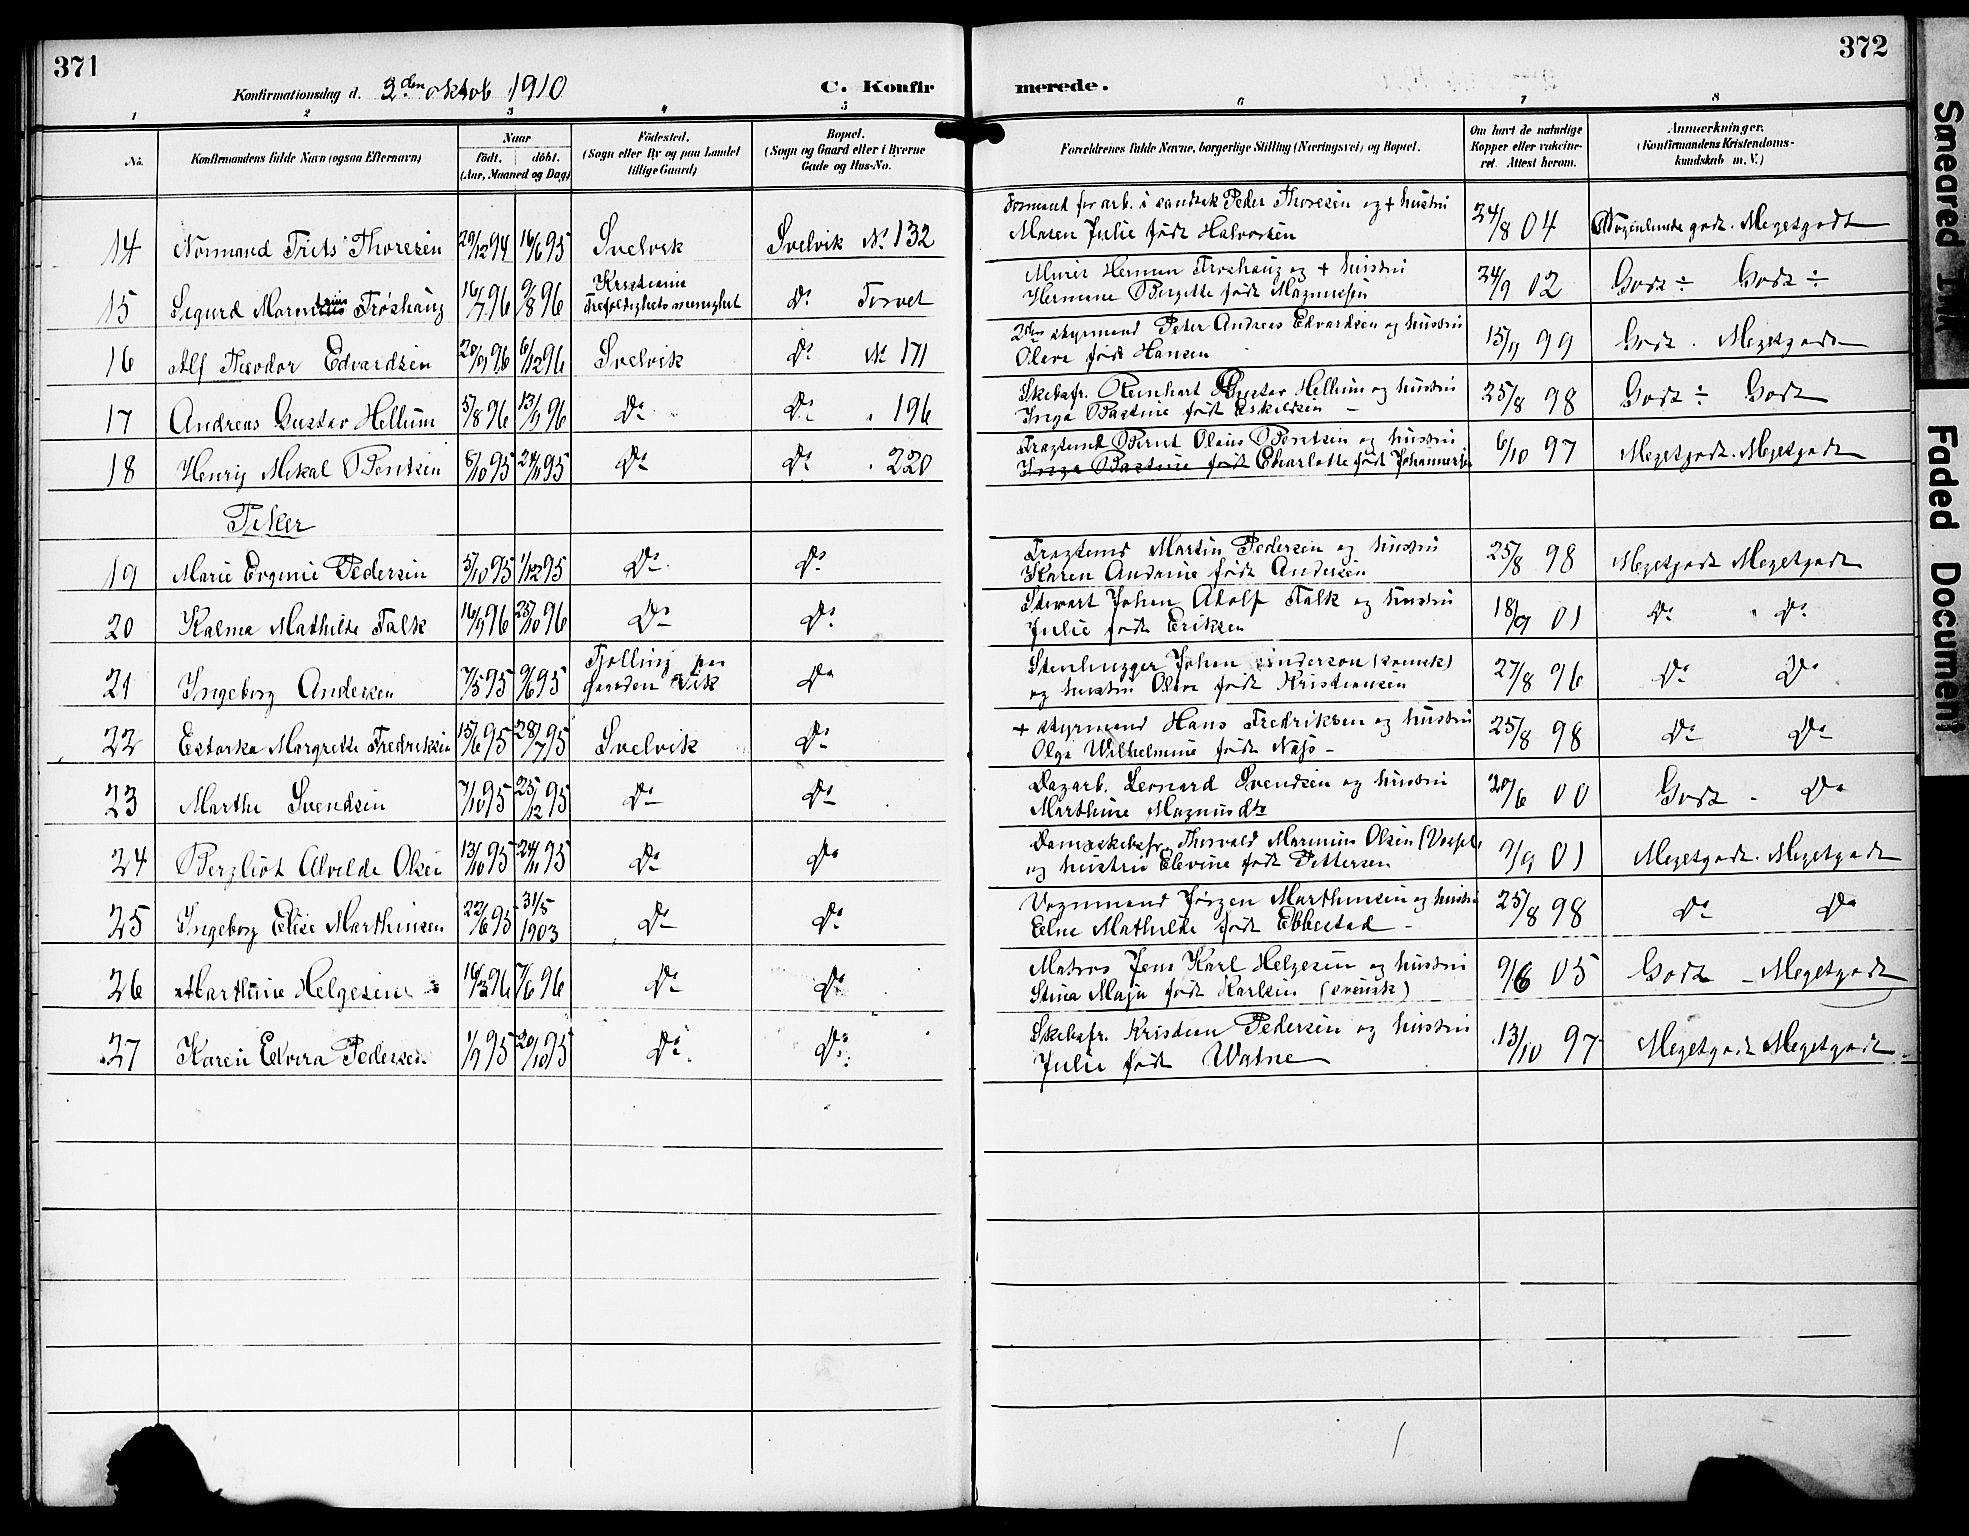 371
372
Konfirmationsdag d. 2den oktob 1910
C. Konfirmerede.
1 2 3 4 5 6 7 8
No.
Konfirmandens fulde Navn (ogsaa Efternavn)
Naar
födt. döbt.
(Aar, Maaned og Dag)
Födested.
(Sogn eller By og paa Landet
tillige Gaard)
Bopæl.
(Sogn og Gaard eller i Byerne
Gade og Hus-No.
Forældrenes fulde Navne, borgerlige Stilling (Næringsvei) og Bopæl.
Om havt de naturlige
Kopper eller vakcine-
ret. Attest herom.
Anmærkninger.
(Konfirmandens Kristendoms-
kundskab m. V.)
Formand for arb. i sandtak Peder Thoresen og + hustru
14 Normand Frits Thoresen 29/12 94 16/6 95 Svelvik Svelvik No 132 Maren Julie født Halvorsen 24/8 04 Nogenlunde godt. Megetgodt
Kristiania
Murer Herman Frøshaug og + hustru
15 Sigurd Frøshaug 16/7 96 9/8 96 Trefoldighets menighet Do Torvet Hermane Birgitte født Magnussen 24/9 02 Godt ÷ Godt ÷
2den styrmand Peter Andreas Edvardsen og hustru
16 Alf Theodor Edvardsen 20/9 96 6/12 96 Svelvik Do No 171 Olava født Hansen 15/9 99 Godt. Megetgodt
Skibsfr. Reinhart Gustav Hellum og hustru
17 Andreas Gustav Hellum 5/8 96 13/9 96 Do Do " 196 Inga Bastine født Eskildsen – 25/8 98 Godt ÷ Godt
Fragtemd Bernt Olaus Bentsen og hustru
18 Henrij Mikal Bentsen 8/10 95 24/11 95 Do Do " 220 Inga Bastine født Charlotte født Johannesen 6/10 97 Megetgodt. Megetgodt
Piker
Fragtemd Martin Pedersen og hustru
19 Marie Eugenie Pedersen 5/10 95 1/12 95 Do Do Karen Andrine født Andersen 25/8 98 Megetgodt Megetgodt
Stewart Johan Adolf Falk og hustru
20 Kalma Mathilde Falk 16/9 96 25/10 96 Do Do Julie født Eriksen 18/9 01 Do Do
Tjølling paa
Stenhugger Johan Anderson (svensk)
21 Ingeborg Andersen 7/5 95 9/6 95 gaarden Vik Do og hustru Olava født Kristiansen 27/8 96 Do Do
+ styrmand Hans Fredriksen og hustru
22 Margrethe Fredriksen 15/6 95 28/7 95 Svelvik Do Olga Wilhelmine født Næss – 25/8 98 Do Do
Dagarb. Leonard Svendsen og hustru
23 Marthe Svendsen 7/10 95 25/12 95 Do Do Marthine Magnusdtr 20/6 00 Godt – Do
Damskibsfr. Thorvald Marinius Olsen
24 Bergliot Alvilde Olsen 13/10 95 24/11 95 Do Do og hustru Elevine født Pettersen 9/9 01 Megetgodt. Megetgodt
Vognmand Jørgen Marthinsen og hustru
25 Ingeborg Elise Marthinsen 22/6 95 31/5 1903 Do Do Eline Mathilde født Ebbestad – 25/8 98 Do Do
Matros Jens Karl Helgesen og hustru
26 Marthine Helgesen 16/3 96 7/6 96 Do Do Stina Maja født Karlsen (svensk) 9/6 05 Godt – Megetgodt
Skibsfr. Kristian Pedersen og hustru
27 Karen Elvira Pedersen 1/9 95 20/10 95 Do Do Julie født Watne 13/10 97 Megetgodt Megetgodt
Smeared Ink
Faded Document